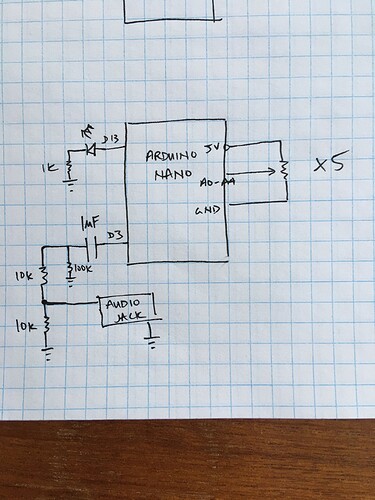 D13
1K
ARDUINO
NANO
5V
A0-A4
GND
X5
1MF
D3
10K
100K
10K
AUDIO
JACK